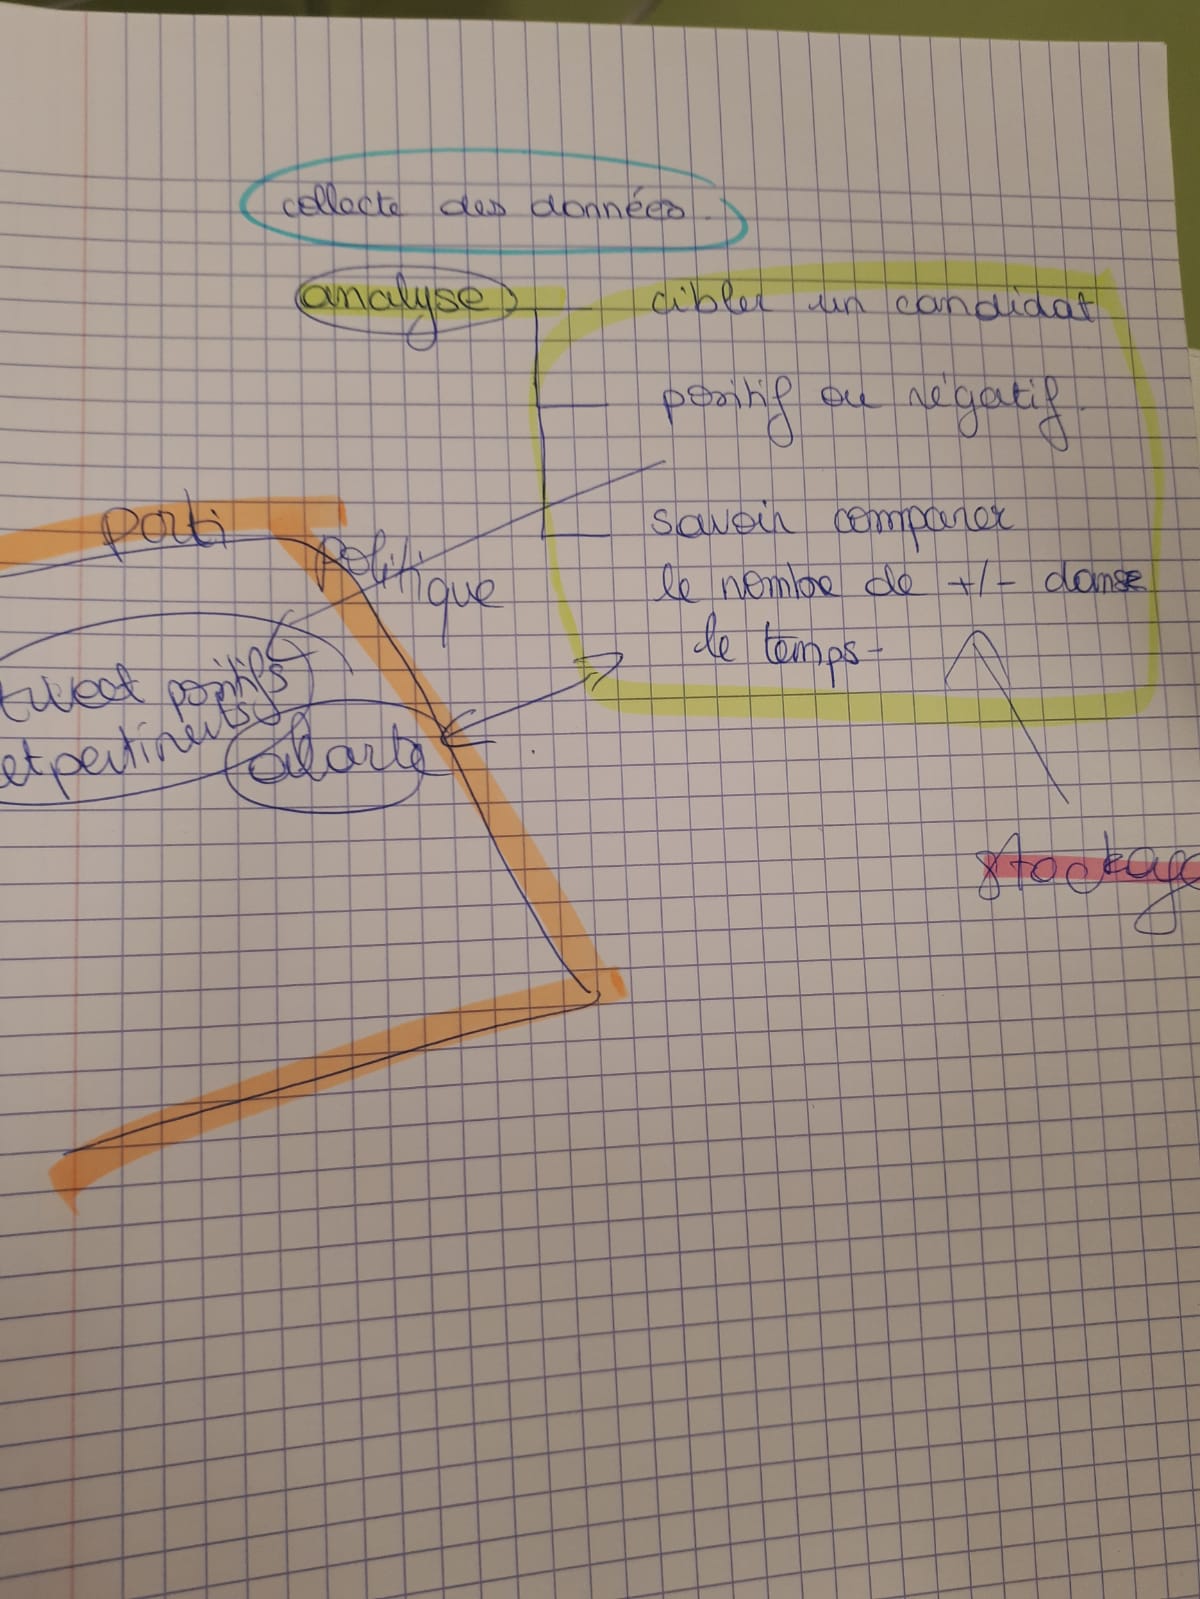 collecte des données.
analyse
cibler un candidat
positif ou négatif.
savoir comparer
le nombre de +/- danse
le temps-
parti
politique
tweet positifs
et pertinents
alarte
stockage